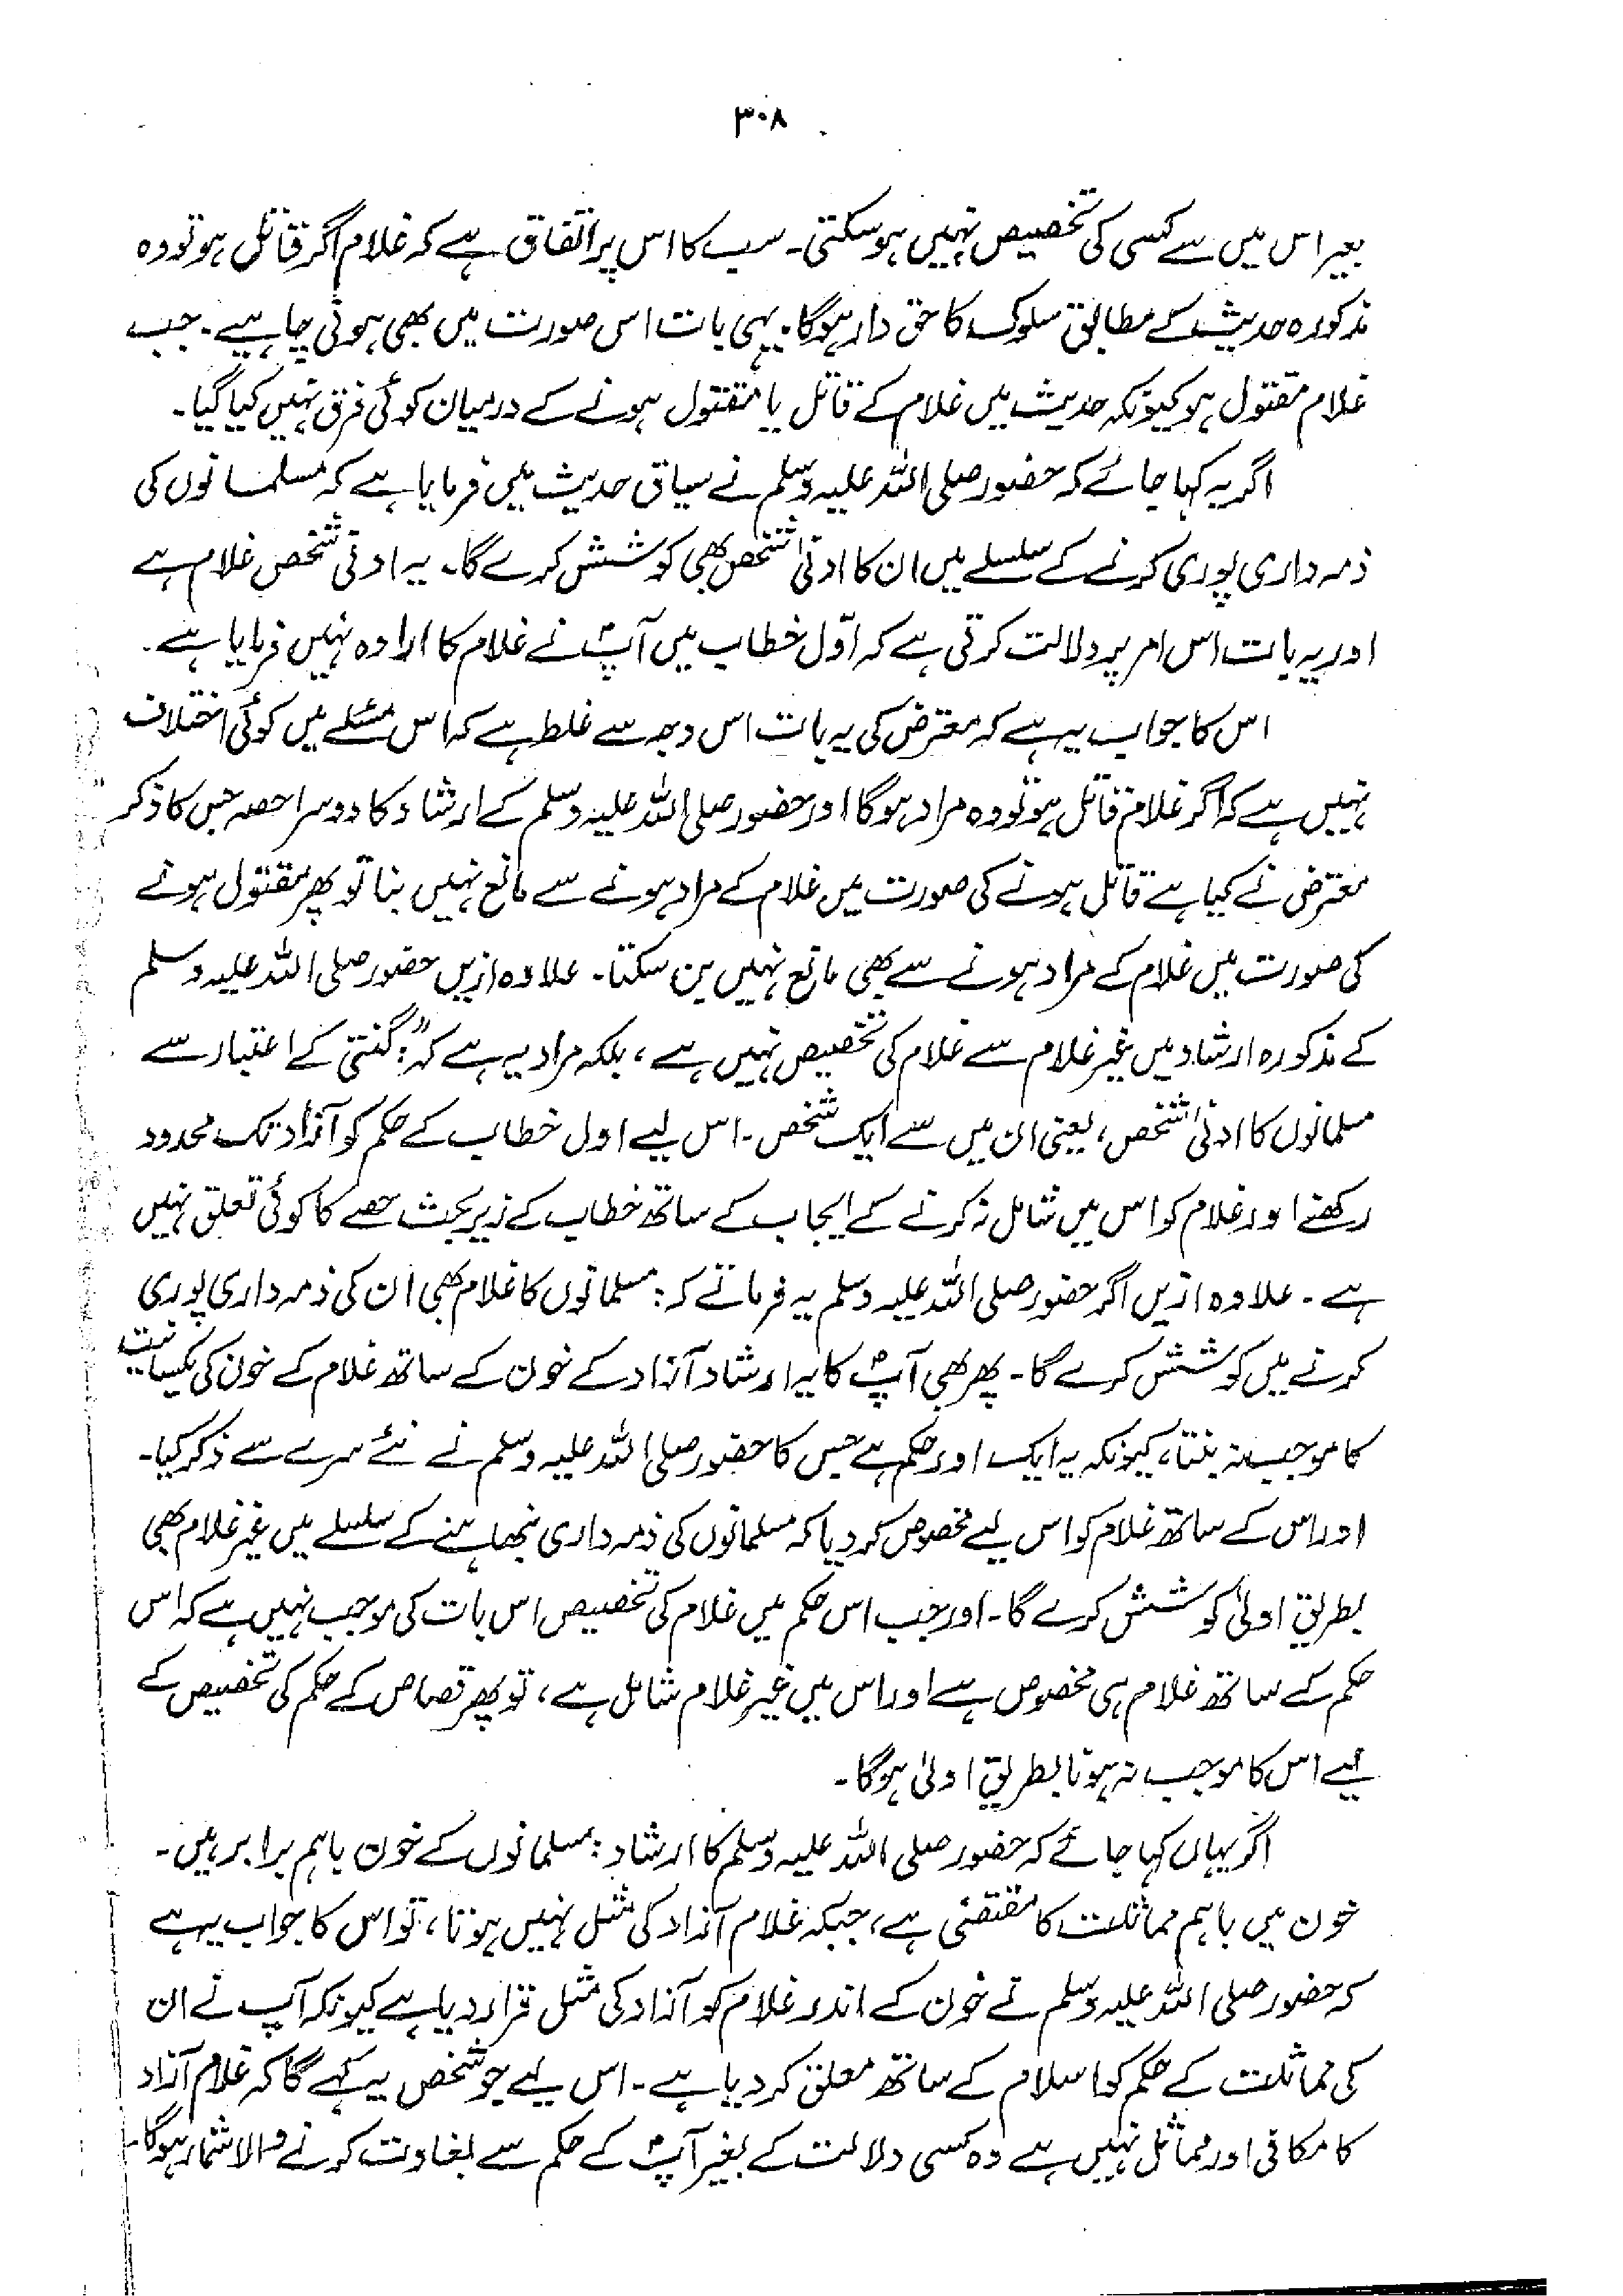 ۳۰۸
بغیر اس میں سے کسی کی تخصیص نہیں ہوسکتی۔ سب کا اس پر اتفاق ہے کہ غلام اگر قاتل ہو تو وہ
مذکورہ حدیث کے مطابق سلوک کا حق دار ہوگا۔ یہی بات اس صورت میں بھی ہونی چاہیے۔ جب
غلام مقتول ہو کیونکہ حدیث میں غلام کے قاتل یا مقتول ہونے کے درمیان کوئی فرق نہیں کیا گیا۔
اگر یہ کہا جائے کہ حضور صلی اللہ علیہ وسلم نے سیاق حدیث میں فرمایا ہے کہ مسلمانوں کی
ذمہ داری پوری کرنے کے سلسلے میں ان کا ادنیٰ شخص بھی کوشش کرے گا۔ یہ ادنیٰ شخص غلام ہے
اور یہ بات اس امر پر دلالت کرتی ہے کہ اوّل خطاب میں آپؐ نے غلام کا ارادہ نہیں فرمایا ہے۔
اس کا جواب یہ ہے کہ معترض کی یہ بات اس وجہ سے غلط ہے کہ اس مسئلے میں کوئی اختلاف
نہیں ہے کہ اگر غلام قاتل ہو تو وہ مراد ہوگا اور حضور صلی اللہ علیہ وسلم کے ارشاد کا دوسرا حصہ جس کا ذکر
معترض نے کیا ہے قاتل ہونے کی صورت میں غلام کے مراد ہونے سے مانع نہیں بنا تو پھر مقتول ہونے
کی صورت میں غلام کے مراد ہونے سے بھی مانع نہیں بن سکتا۔ علاوہ ازیں حضور صلی اللہ علیہ وسلم
کے مذکورہ ارشاد میں غیر غلام سے غلام کی تخصیص نہیں ہے، بلکہ مراد یہ ہے کہ: "گنتی کے اعتبار سے
مسلمانوں کا ادنیٰ شخص، یعنی ان میں سے ایک شخص۔ اس لیے اول خطاب کے حکم کو آزاد تک محدود
رکھنے اور غلام کو اس میں شامل نہ کرنے کے ایجاب کے ساتھ خطاب کے زیر بحث حصے کا کوئی تعلق نہیں
ہے۔ علاوہ ازیں اگر حضور صلی اللہ علیہ وسلم یہ فرماتے کہ: مسلمانوں کا غلام بھی ان کی ذمہ داری پوری
کرنے میں کوشش کرے گا۔ پھر بھی آپؐ کا یہ ارشاد آزاد کے خون کے ساتھ غلام کے خون کی یکسانیت
کا موجب نہ بنتا، کیونکہ یہ ایک اور حکم ہے جس کا حضور صلی اللہ علیہ وسلم نے نئے سرے سے ذکر کیا۔
اور اس کے ساتھ غلام کو اس لیے مخصوص کردیا کہ مسلمانوں کی ذمہ داری نبھاہنے کے سلسلے میں غیر غلام بھی
بطریق اولیٰ کوشش کرے گا۔ اور جب اس حکم میں غلام کی تخصیص اس بات کی موجب نہیں ہے کہ اس
حکم کے ساتھ غلام ہی مخصوص ہے اور اس میں غیر غلام شامل ہے، تو پھر قصاص کے حکم کی تخصیص کے
لیے اس کا موجب نہ ہونا بطریق اولیٰ ہوگا۔
اگر یہاں کہا جائے کہ حضور صلی اللہ علیہ وسلم کا ارشاد: مسلمانوں کے خون باہم برابر ہیں۔
خون میں باہم مماثلت کا مقتضی ہے، جبکہ غلام آزاد کی مثل نہیں ہوتا، تو اس کا جواب یہ ہے
کہ حضور صلی اللہ علیہ وسلم نے خون کے اندر غلام کو آزاد کی مثل قرار دیا ہے کیونکہ آپ نے ان
کی مماثلت کے حکم کو اسلام کے ساتھ معلق کردیا ہے۔ اس لیے جو شخص یہ کہے گا کہ غلام آزاد
کا مکافی اور مماثل نہیں ہے وہ کسی دلالت کے بغیر آپؐ کے حکم سے بغاوت کرنے والا شمار ہوگا۔